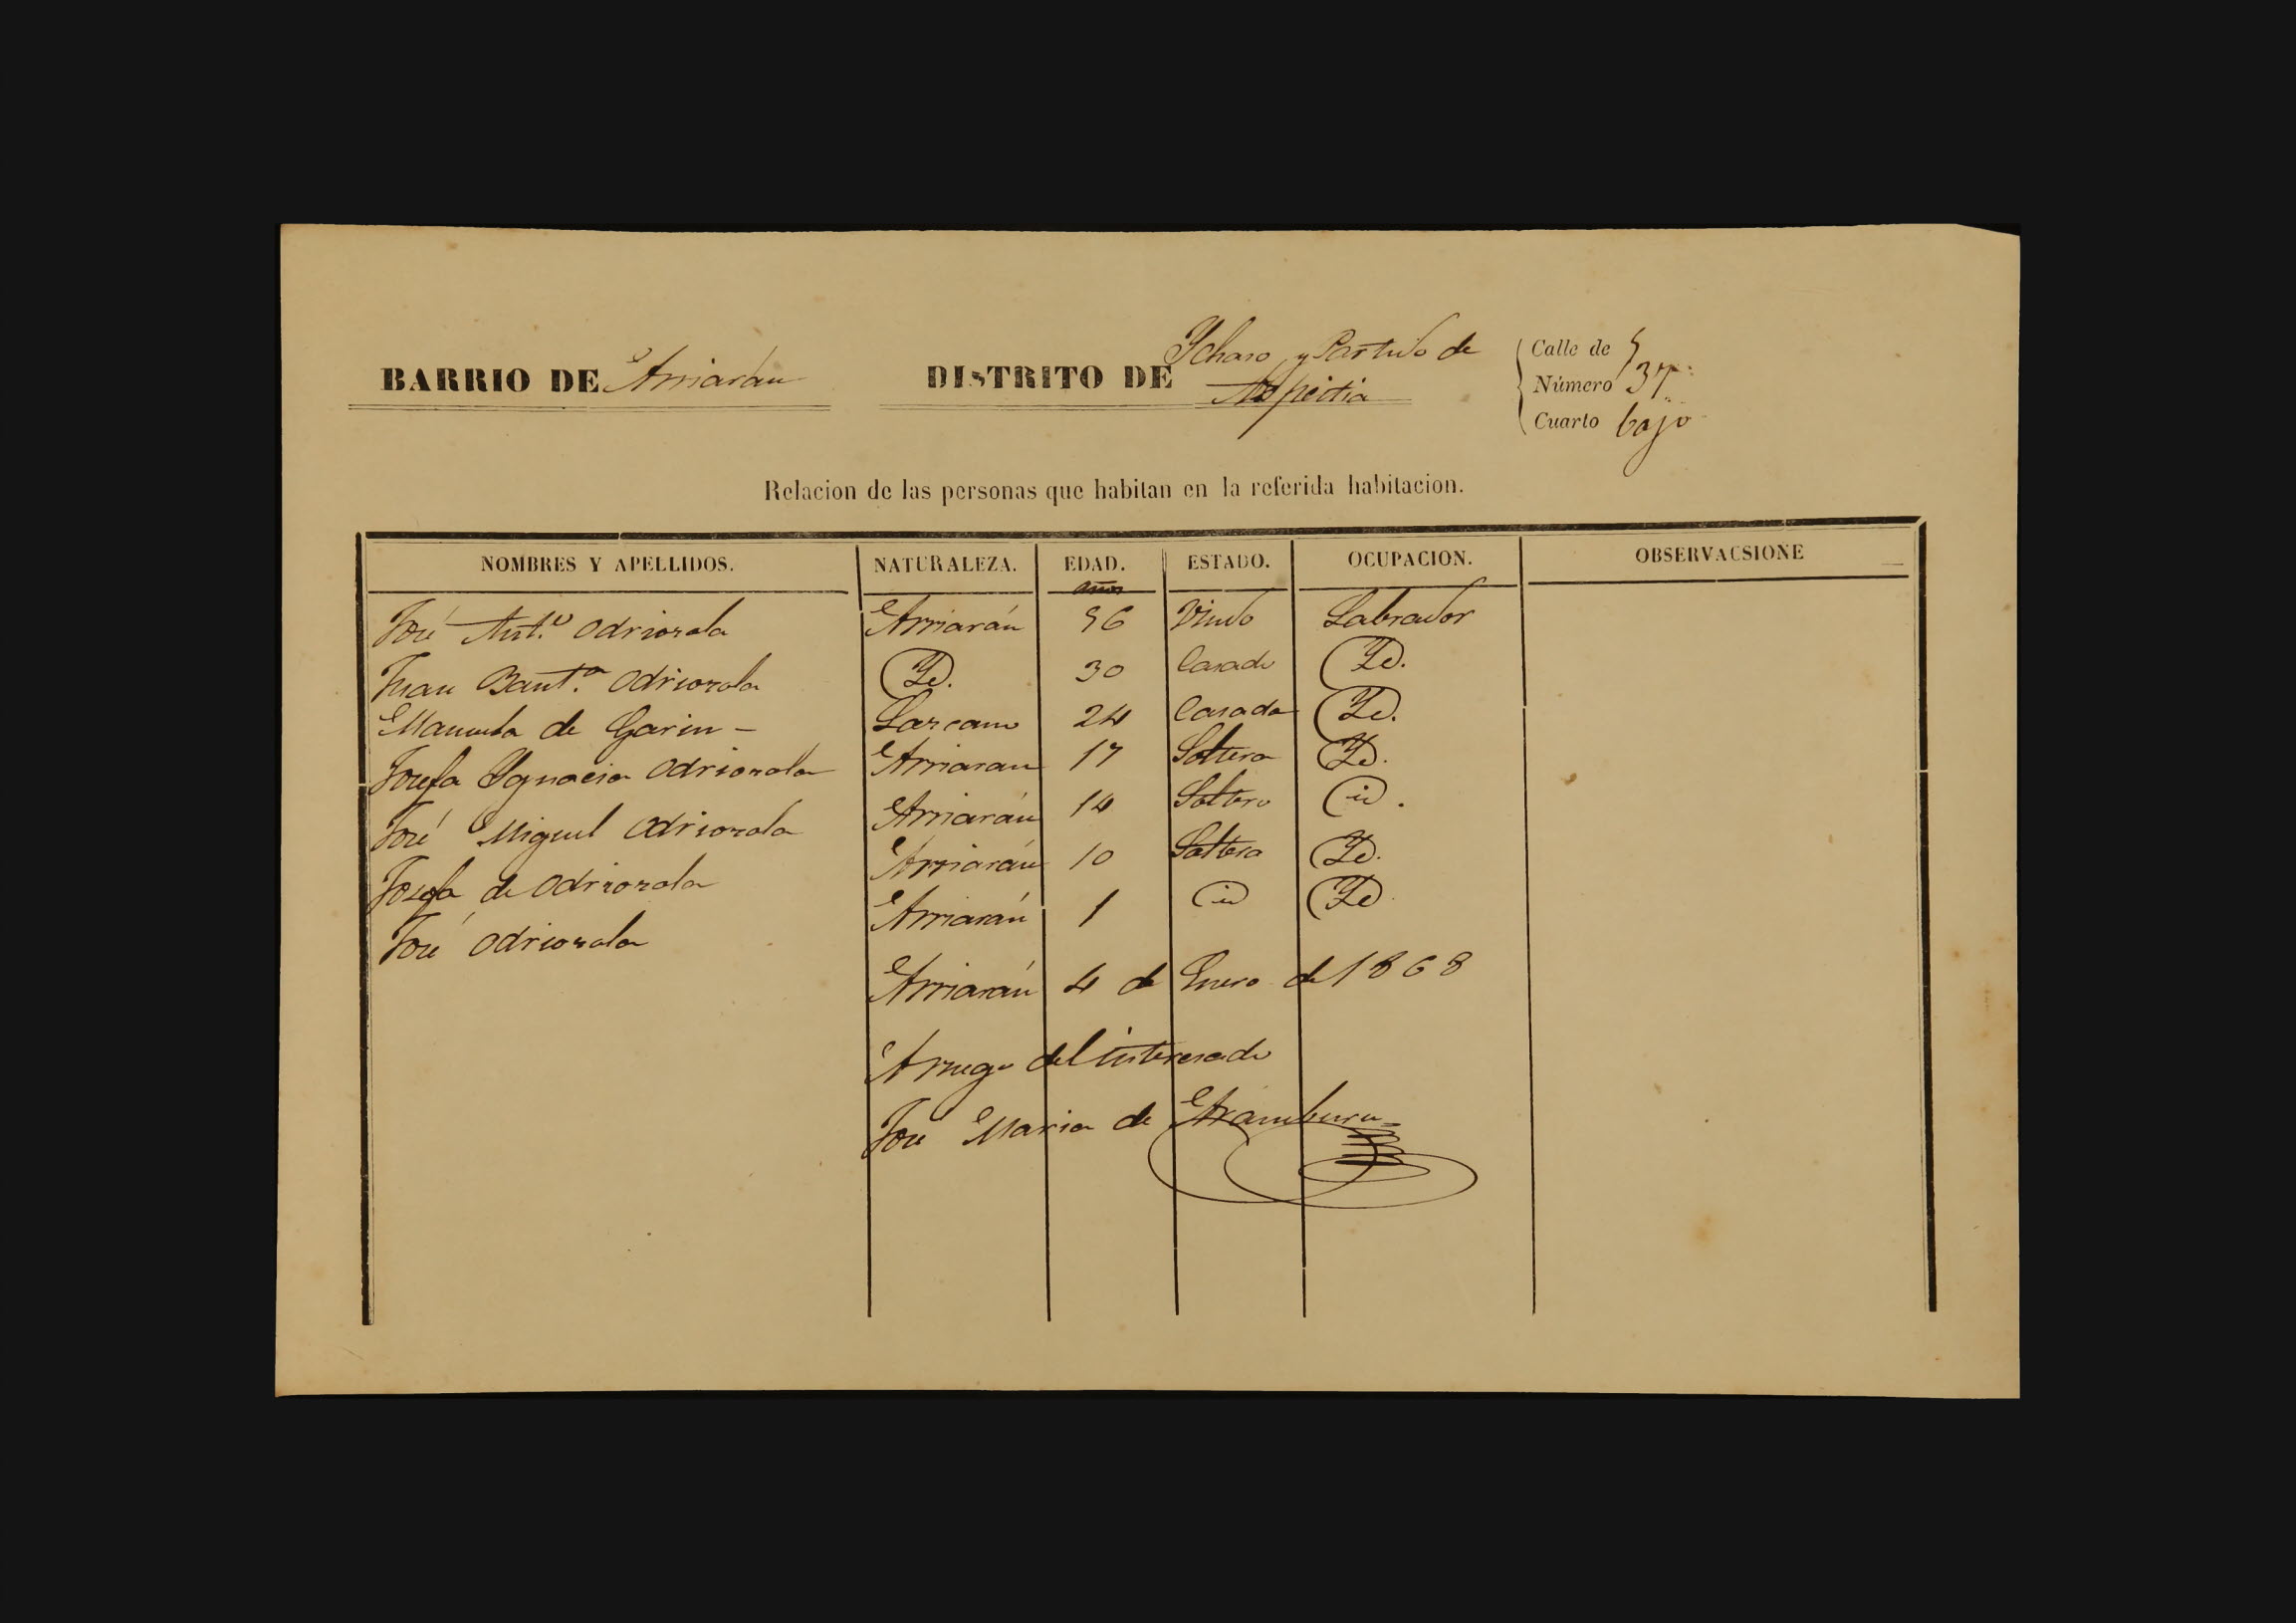 BARRIO DE Arriarán
DISTRITO DE Ychaso y Partido de
Azpeitia
Calle de
Número 37
Cuarto bajo
Relacion de las personas que habitan en la referida habitacion.
NOMBRES Y APELLIDOS. NATURALEZA. EDAD. ESTADO. OCUPACION. OBSERVACSIONE
años
José Ant.º Odriozola Arriarán 56 Viudo Labrador
Juan Baut.ª Odriozola Yd. 30 Casado Yd.
Manuela de Garin - Lazcano 24 Casada Yd.
Josefa Ygnacia Odriozola Arriaran 17 Soltera Yd.
José Miguel Odriozola Arriarán 14 Soltero id.
Josefa de Odriozola Arriarán 10 Soltera Yd.
José Odriozola Arriarán 1 id Yd
Arriarán 4 de Enero de 1868
Arruego del interesado
José Maria de Aramburu